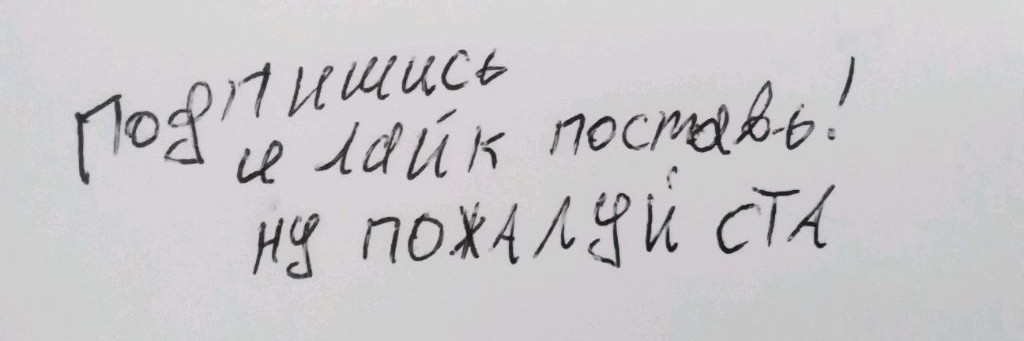 Подпишись
и лайк поставь!
ну ПОЖАЛУЙСТА